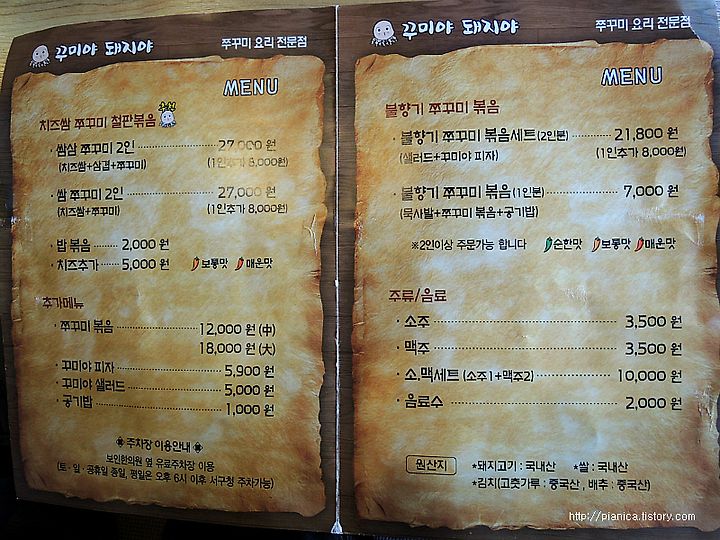 꾸미야 돼지야
쭈꾸미 요리 전문점
MENU
치즈쌈 쭈꾸미 철판볶음
추천
· 쌈삼 쭈꾸미 2인 27,000 원
(치즈쌈+삼겹+쭈꾸미) (1인추가 8,000원)
· 쌈 쭈꾸미 2인 27,000 원
(치즈쌈+쭈꾸미) (1인추가 8,000원)
· 밥 볶음 2,000 원
· 치즈추가 5,000 원 보통맛 매운맛
추가메뉴
· 쭈꾸미 볶음 12,000 원 (中)
18,000 원 (大)
· 꾸미야 피자 5,900 원
· 꾸미야 샐러드 5,000 원
· 공기밥 1,000 원
※ 주차장 이용안내 ※
보인한의원 옆 유료주차장 이용
(토 · 일 · 공휴일 종일, 평일은 오후 6시 이후 서구청 주차가능)
꾸미야 돼지야
쭈꾸미 요리 전문점
MENU
불향기 쭈꾸미 볶음
· 불향기 쭈꾸미 볶음세트(2인분) 21,800 원
(샐러드+꾸미야 피자) (1인추가 8,000원)
· 불향기 쭈꾸미 볶음(1인분) 7,000 원
(묵사발+쭈꾸미 볶음+공기밥)
※2인이상 주문가능 합니다 순한맛 보통맛 매운맛
주류/음료
· 소주 3,500 원
· 맥주 3,500 원
· 소.맥세트 (소주1+맥주2) 10,000 원
· 음료수 2,000 원
원산지 *돼지고기 : 국내산 *쌀 : 국내산
*김치(고춧가루 : 중국산 , 배추 : 중국산)
http://pianica.tistory.com